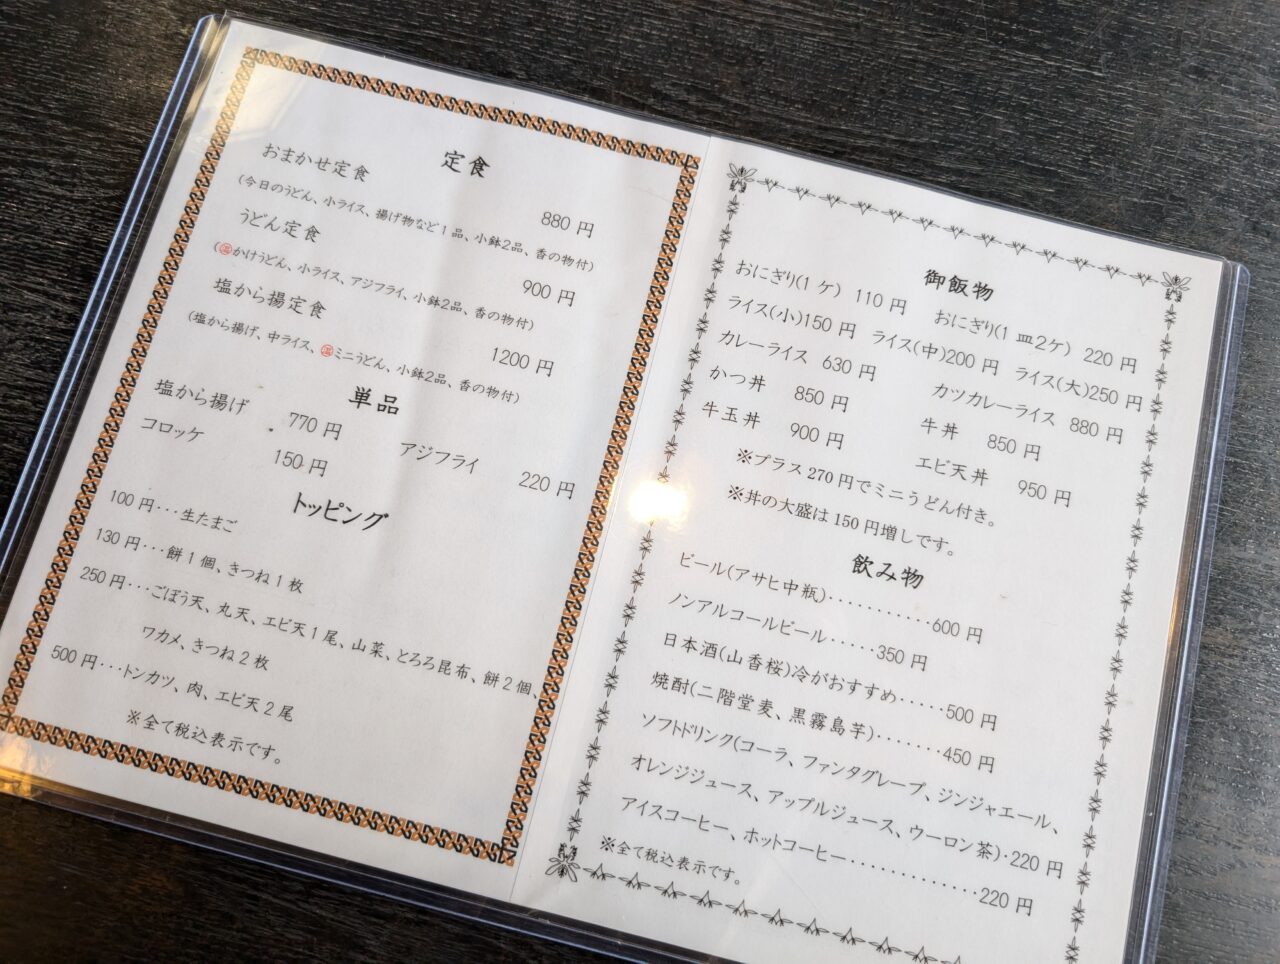 定食
おまかせ定食 880 円
(今日のうどん、小ライス、揚げ物など1品、小鉢2品、香の物付)
うどん定食 900 円
(温かけうどん、小ライス、アジフライ、小鉢2品、香の物付)
塩から揚定食 1200 円
(塩から揚げ、中ライス、温ミニうどん、小鉢2品、香の物付)
単品
塩から揚げ 770 円 アジフライ 220 円
コロッケ 150 円
トッピング
100 円・・・生たまご
130 円・・・餅1個、きつね1枚
250 円・・・ごぼう天、丸天、エビ天1尾、山菜、とろろ昆布、餅2個、
ワカメ、きつね2枚
500 円・・・トンカツ、肉、エビ天2尾
※全て税込表示です。
御飯物
おにぎり(1 ケ) 110 円 おにぎり(1 皿2ケ) 220 円
ライス(小)150 円 ライス(中)200 円 ライス(大)250 円
カレーライス 630 円 カツカレーライス 880 円
かつ丼 850 円 牛丼 850 円
牛玉丼 900 円 エビ天丼 950 円
※プラス 270 円でミニうどん付き。
※丼の大盛は 150 円増しです。
飲み物
ビール(アサヒ中瓶)・・・・・・・・・・600 円
ノンアルコールビール・・・・・350 円
日本酒(山香桜)冷がおすすめ・・・・・500 円
焼酎(二階堂麦、黒霧島芋)・・・・・・・450 円
ソフトドリンク(コーラ、ファンタグレープ、ジンジャエール、
オレンジジュース、アップルジュース、ウーロン茶)・220 円
アイスコーヒー、ホットコーヒー・・・・・・・・・・・・・・220 円
※全て税込表示です。